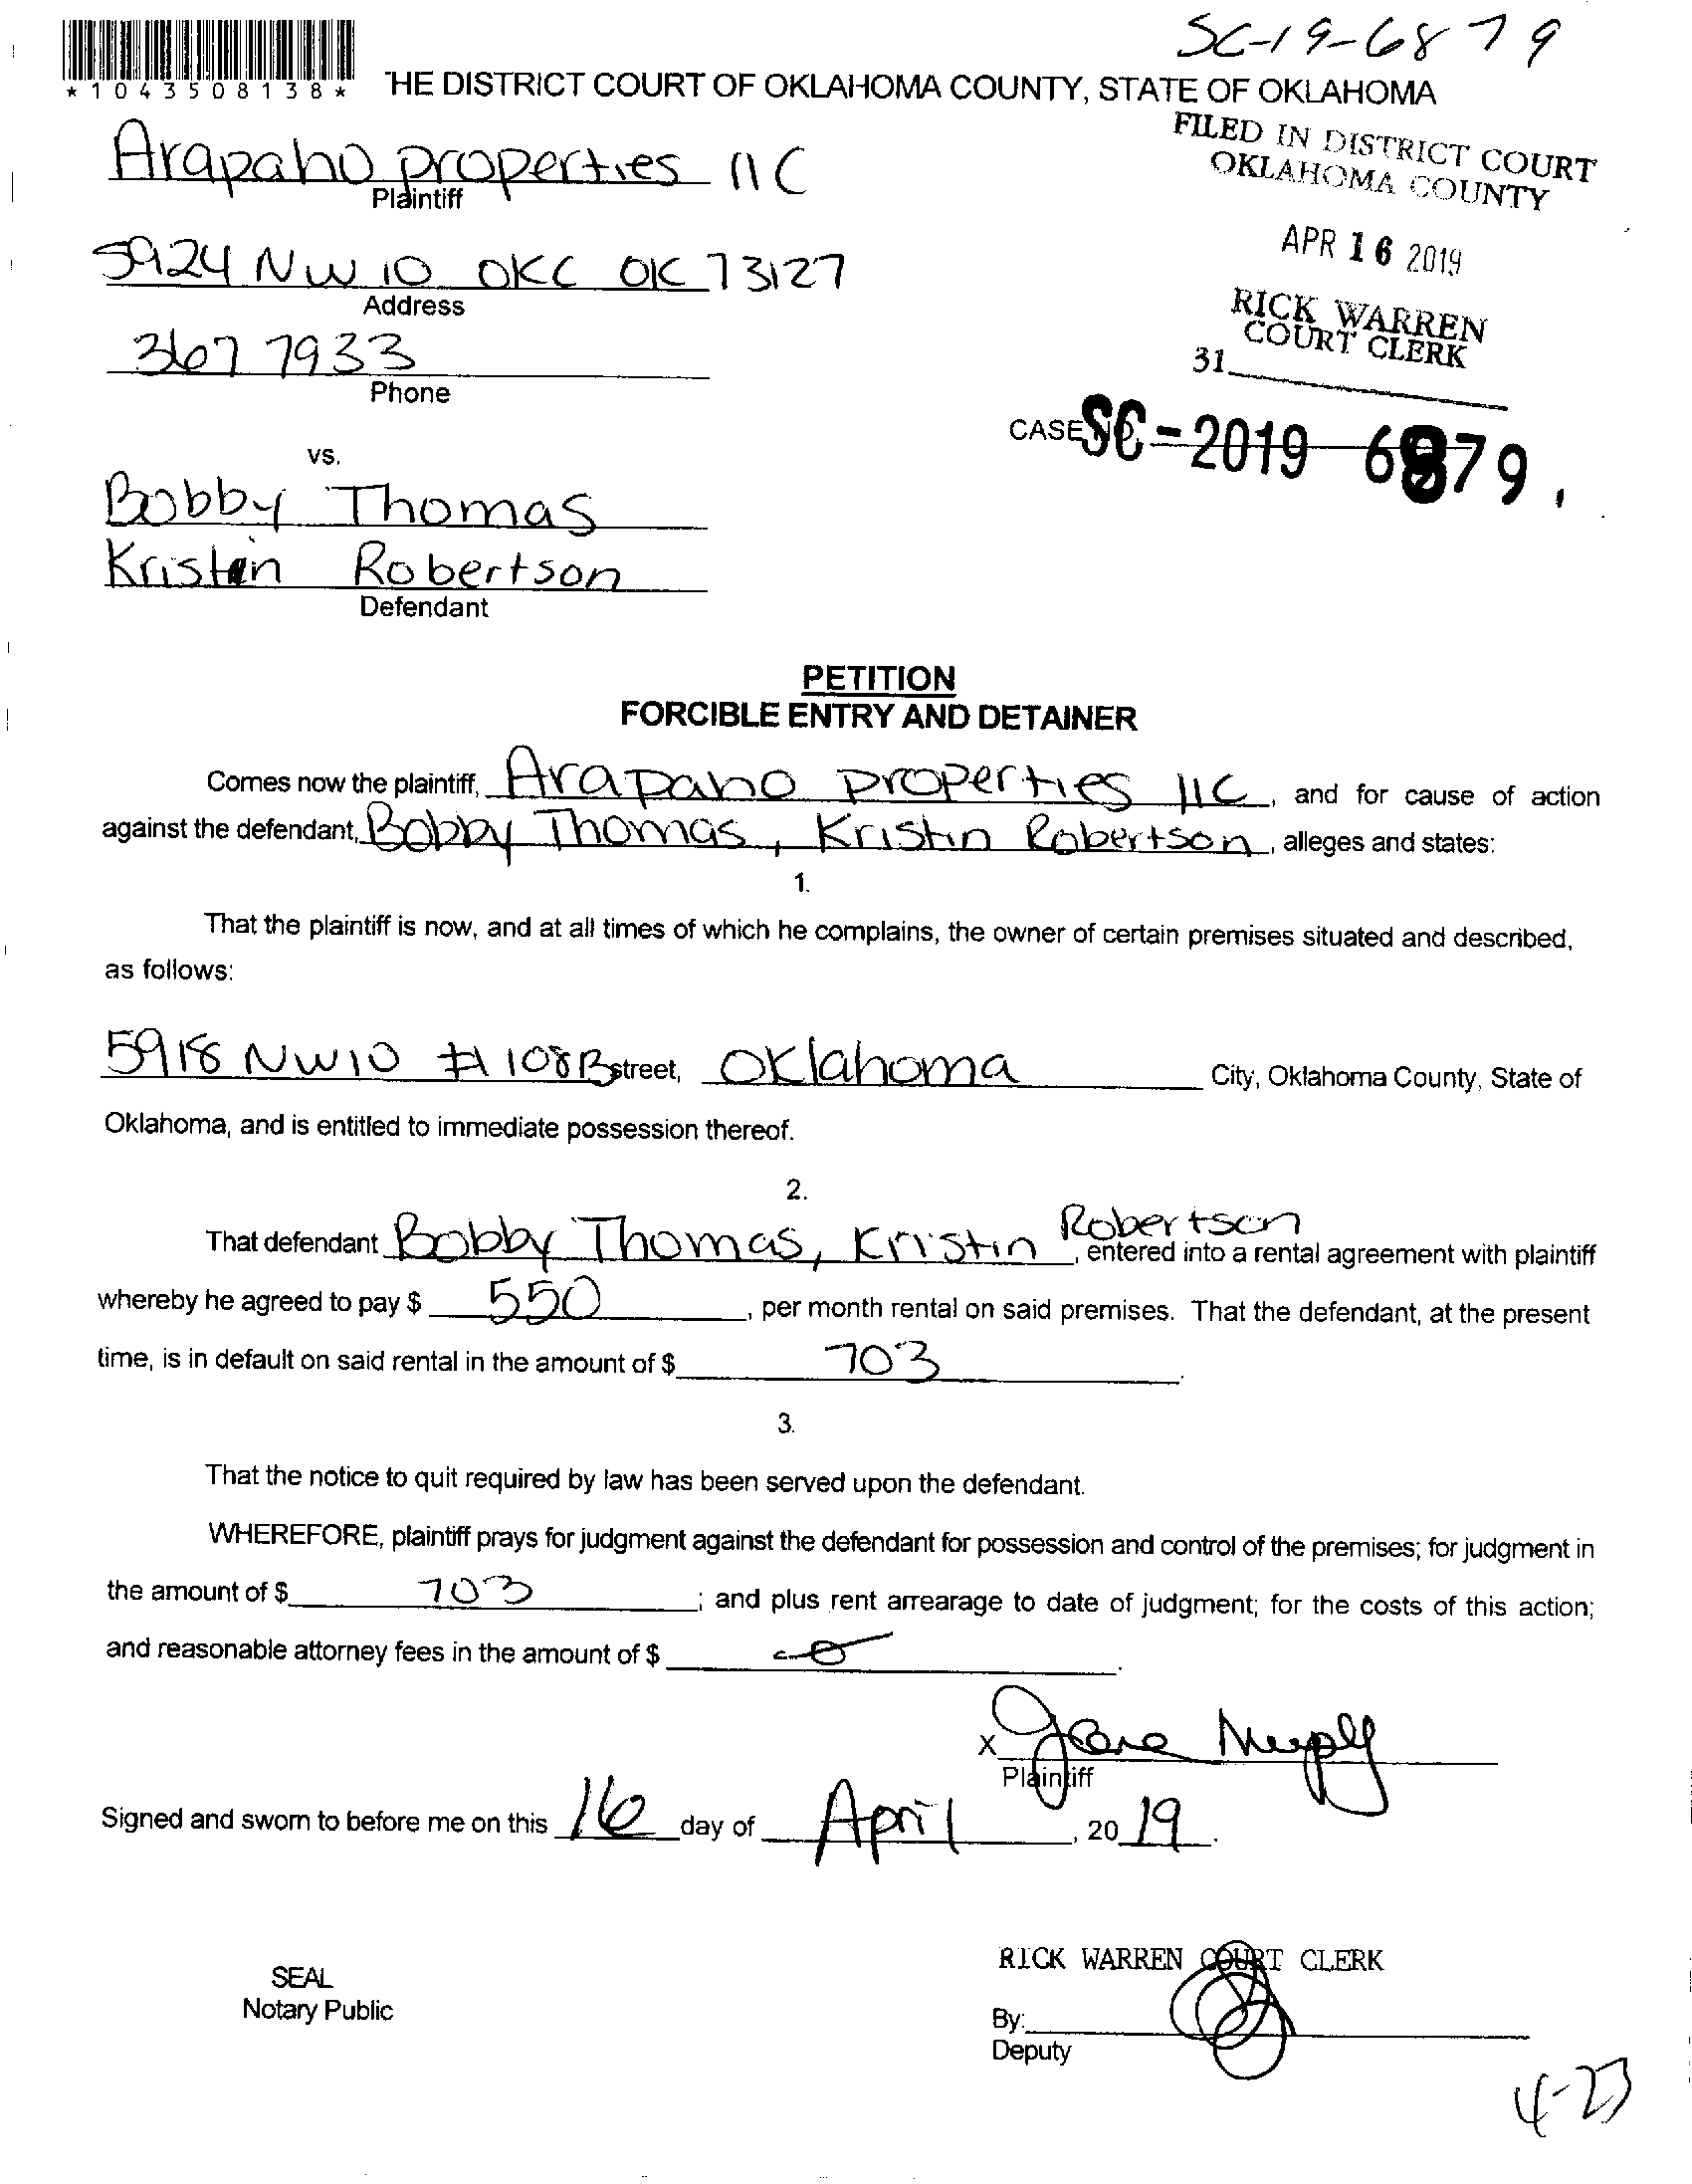 SC-19-6879
*1043508138*
THE DISTRICT COURT OF OKLAHOMA COUNTY, STATE OF OKLAHOMA
FILED IN DISTRICT COURT
OKLAHOMA COUNTY
Arapaho properties llC
Plaintiff
APR 16 2019
5924 NW 10 OKC OK 73127
Address
RICK WARREN
COURT CLERK
31
367 7933
Phone
CASE NO. SC-2019 6879
vs.
Bobby Thomas
Kristin Robertson
Defendant
PETITION
FORCIBLE ENTRY AND DETAINER
Comes now the plaintiff, Arapaho properties llC, and for cause of action
against the defendant, Bobby Thomas, Kristin Robertson, alleges and states:
1.
That the plaintiff is now, and at all times of which he complains, the owner of certain premises situated and described,
as follows:
5918 NW10 # 108B street, Oklahoma City, Oklahoma County, State of
Oklahoma, and is entitled to immediate possession thereof.
2.
That defendant Bobby Thomas, Kristin Robertson, entered into a rental agreement with plaintiff
whereby he agreed to pay $ 550, per month rental on said premises. That the defendant, at the present
time, is in default on said rental in the amount of $ 703.
3.
That the notice to quit required by law has been served upon the defendant.
WHEREFORE, plaintiff prays for judgment against the defendant for possession and control of the premises; for judgment in
the amount of $ 703; and plus rent arrearage to date of judgment; for the costs of this action;
and reasonable attorney fees in the amount of $ 0.
X
Plaintiff
Signed and sworn to before me on this 16 day of April, 2019.
RICK WARREN COURT CLERK
SEAL
Notary Public
By:
Deputy
4-23